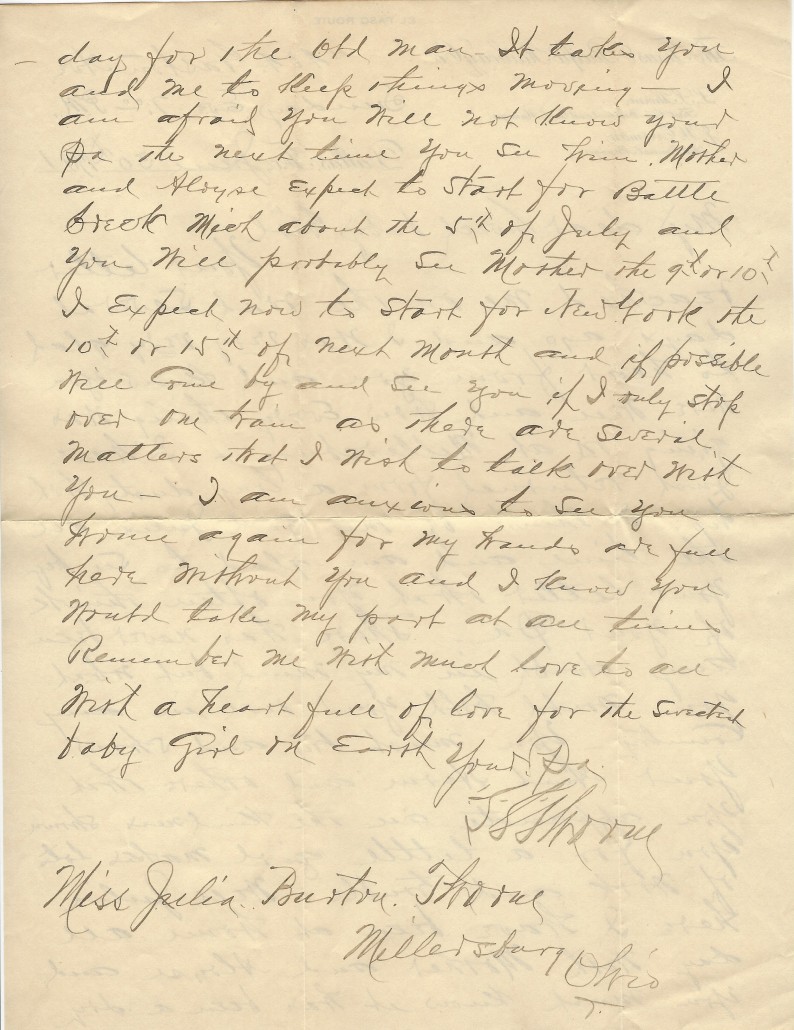 EL PASO ROUTE
day for the Old Man - It takes You
and me to Keep things moving - I
am afraid You Will not Know your
Pa the next time You see him. Mother
and Aloyse Expect to Start for Battle
Creek Mich about the 5th of July and
You Will probably see Mother the 9th or 10th
I Expect now to Start for New York the
10th or 15th of next Month and if possible
Will Come by and see You if I only stop
over one train as there are several
Matters that I Wish to talk over With
You - I am anxious to see You
home again for my hands are full
here Without You and I Know You
Would take my part at all times
Remember me With much love to all
With a heart full of love for the Sweetest
baby Girl on Earth Your Pa.
Thorne
Miss Julia Burton Thorne
Millersburg Ohio